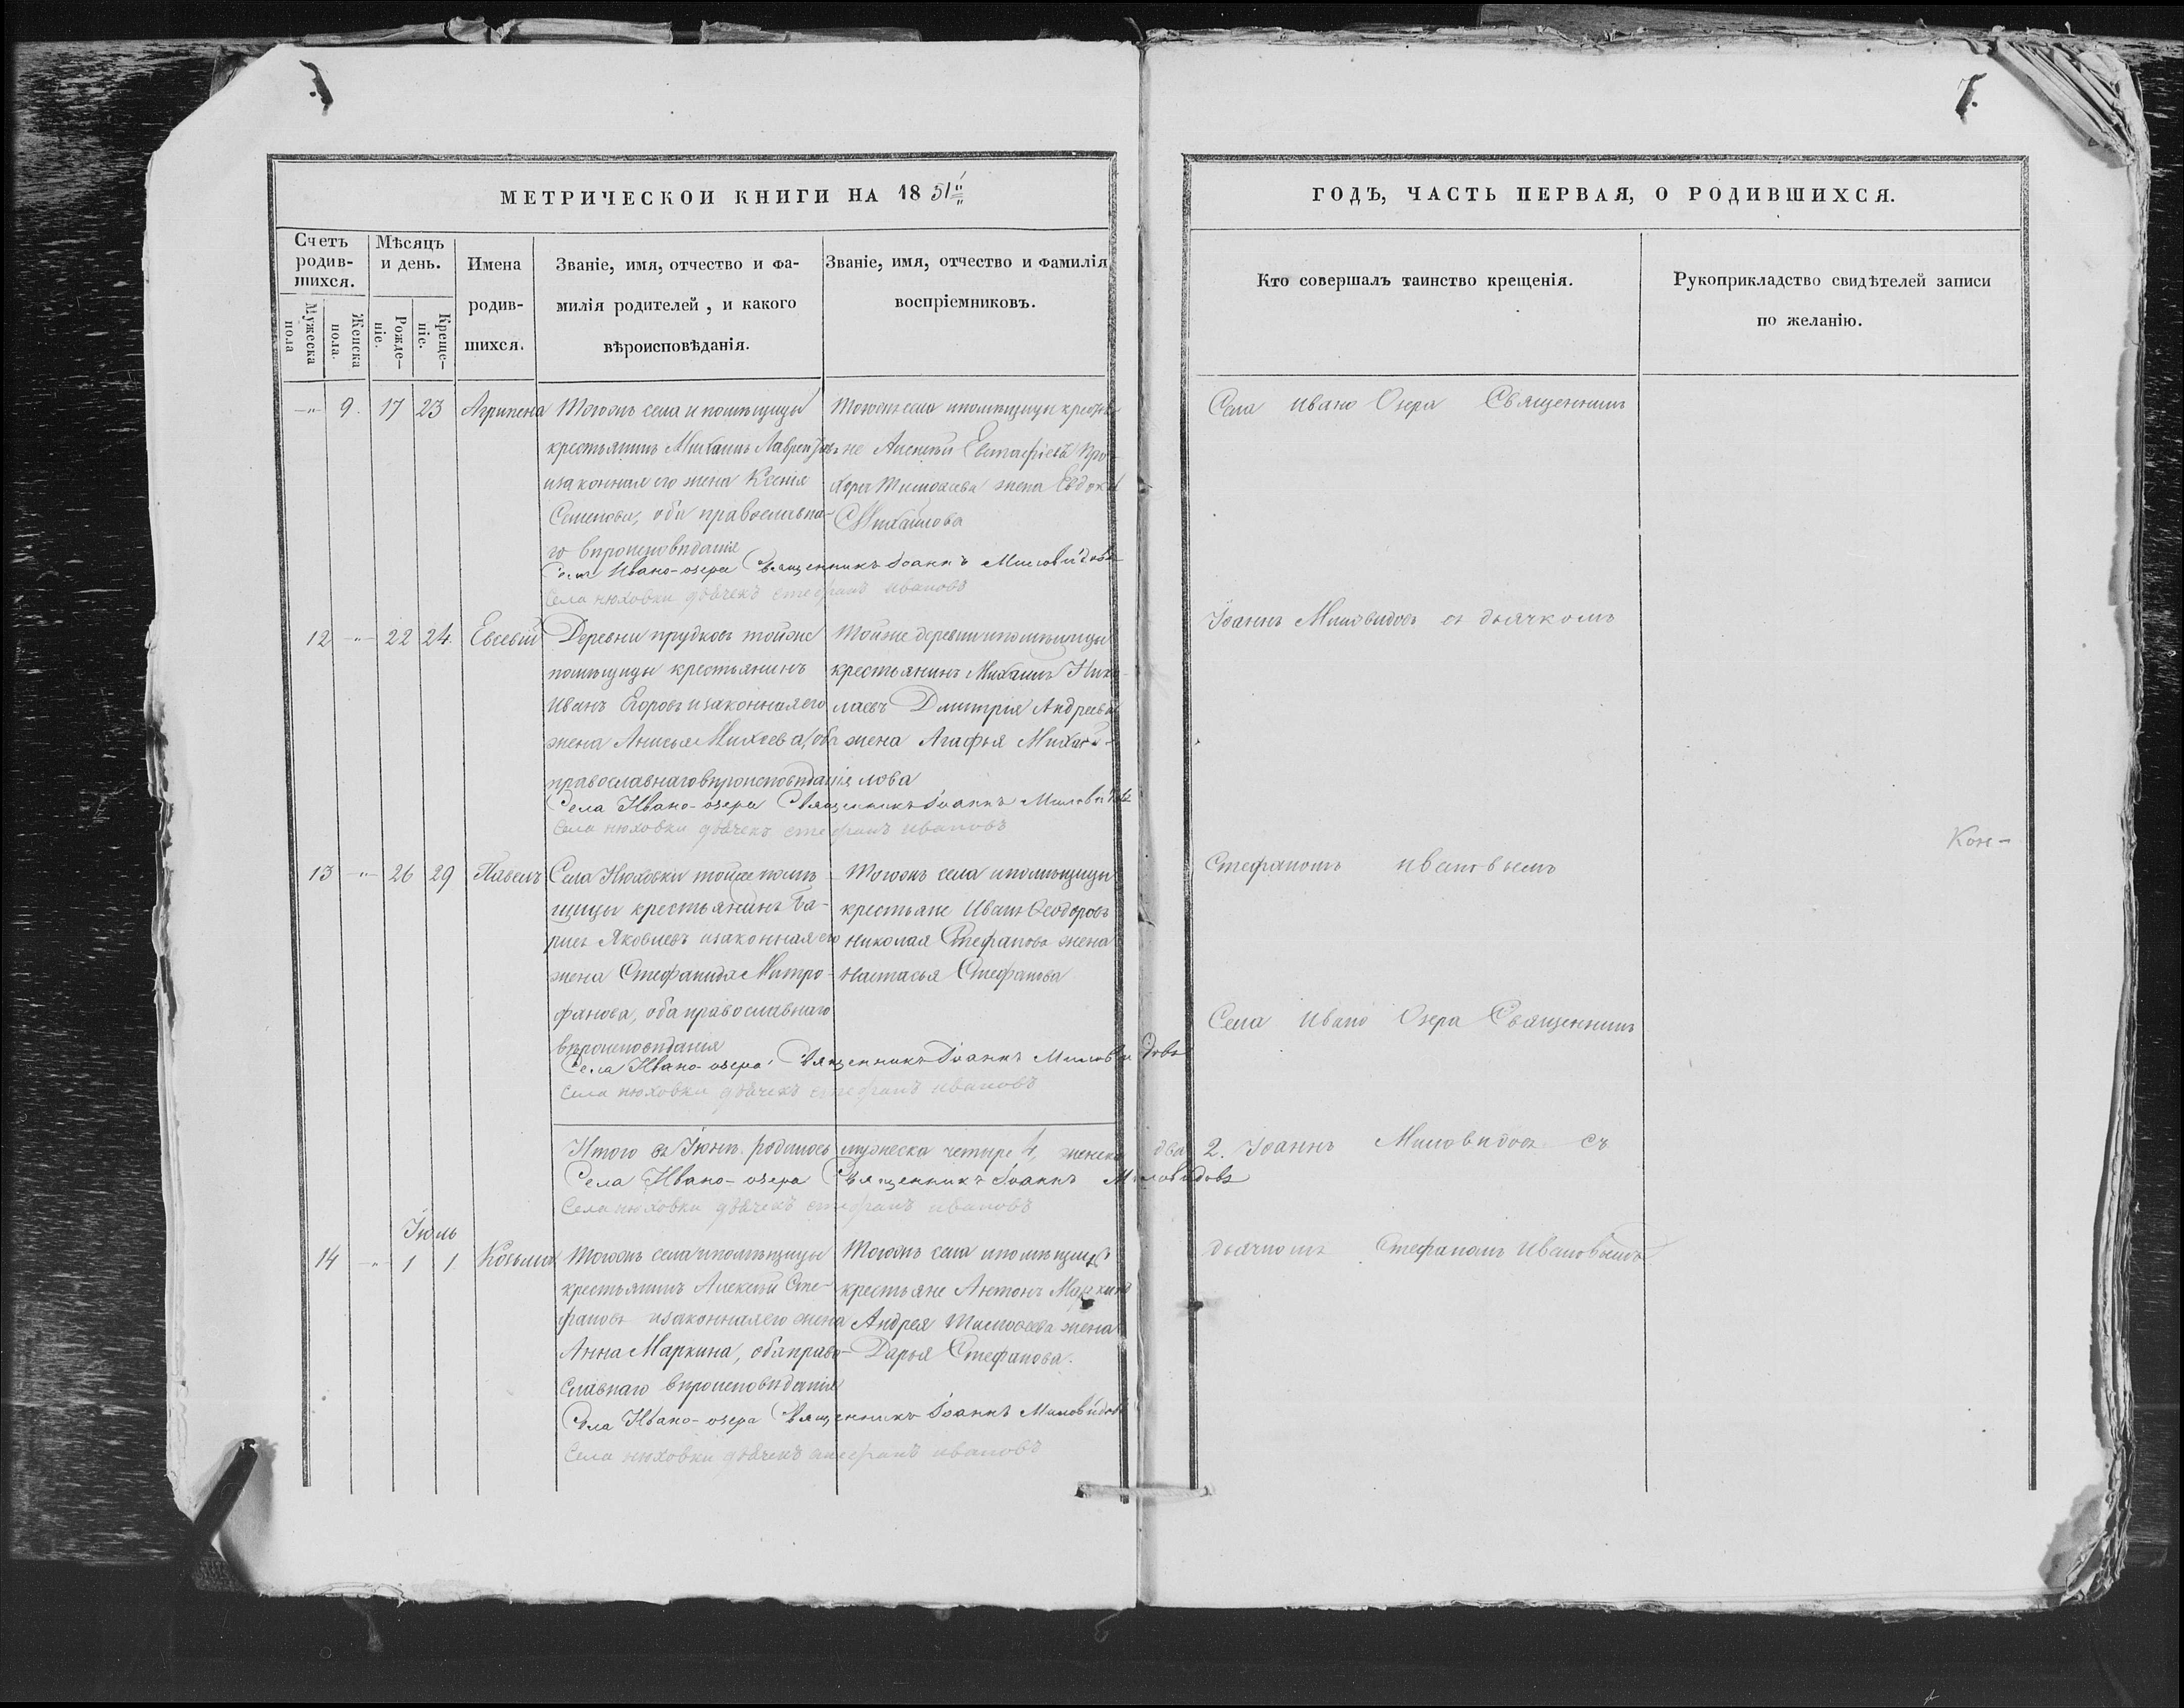 7.
МЕТРИЧЕСКОИ КНИГИ НА 1851
Счетъ родив-шихся.
Мужеска пола
Женска пола.
Мѣсяцъ и день.
Рожде-ніе.
Креще-ніе.
Имена родив-шихся.
Званіе, имя, отчество и фа-
милія родителей, и какого
вѣроисповѣданія.
Званіе, имя, отчество и фамилія
воспріемниковъ.
9. 17 23 Агрипена
Тогожъ села и помѣщицы
крестьянинъ Михаилъ
изаконная его жена Ксенія
Семенова, оба православна-
го вѣроисповѣданія
Тогожъ села ипомѣщицы
не Алексѣй Евстафіевъ
жена
Михайлова
Села Ивано-озера Священникъ Іоаннъ Миловидовъ
Села нюховки дьячекъ стефанъ ивановъ
12 22 24. Евсевій
Деревни прудковъ тойже
помѣщицы крестьянинъ
Иванъ Егоровъ изаконная его
жена Анисья Михеева, оба
православнаго вѣроисповѣданія
Тойже деревни ипомѣщицы
крестьянинъ Михаилъ Нико-
лаевъ Дмитрія Андреева
жена Агафья Михай-
лова
Села Ивано-озера Священникъ Іоаннъ Миловидовъ
Села нюховки дьячекъ стефанъ ивановъ
13 26 29 Павелъ
Села Нюховки тойже помѣ-
щицы крестьянинъ Ба-
рисъ Яковлевъ изаконная его
жена Стефанида Митро-
фанова, оба православнаго
вѣроисповѣданія
Тогожъ села ипомѣщицы
крестьяне Иванъ Ѳеодоровъ
николая Стефанова жена
настасья Стефанова
Села Ивано-озера Священникъ Іоаннъ Миловидовъ
Села нюховки дьячекъ стефанъ ивановъ
Итого въ Іюнѣ родилось мужеска четыре 4, женска два 2.
Села Ивано-озера Священникъ Іоаннъ Миловидовъ
Села нюховки дьячекъ стефанъ ивановъ
Іюль
14 1 1 Козьма
Тогожъ села ипомѣщицы
крестьянинъ Алексѣй Сте-
фановъ изаконная его жена
Анна Маркина, оба право-
славнаго вѣроисповѣданія
Тогожъ села ипомѣщицы
крестьяне Антонъ Маркинъ
Андрея Тимоѳеева жена
Дарья Стефанова.
Села Ивано-озера Священникъ Іоаннъ Миловидовъ
Села нюховки дьячекъ стефанъ ивановъ
7.
ГОДЪ, ЧАСТЬ ПЕРВАЯ, О РОДИВШИХСЯ.
Кто совершалъ таинство крещенія.
Рукоприкладство свидѣтелей записи
по желанію.
Села Ивано Озера Священникъ
Іоаннъ Миловидовъ съ дьячкомъ
Кон-
Стефаномъ Ивановымъ
Села Ивано Озера Священникъ
Іоаннъ Миловидовъ съ
дьячкомъ Стефаномъ Ивановымъ